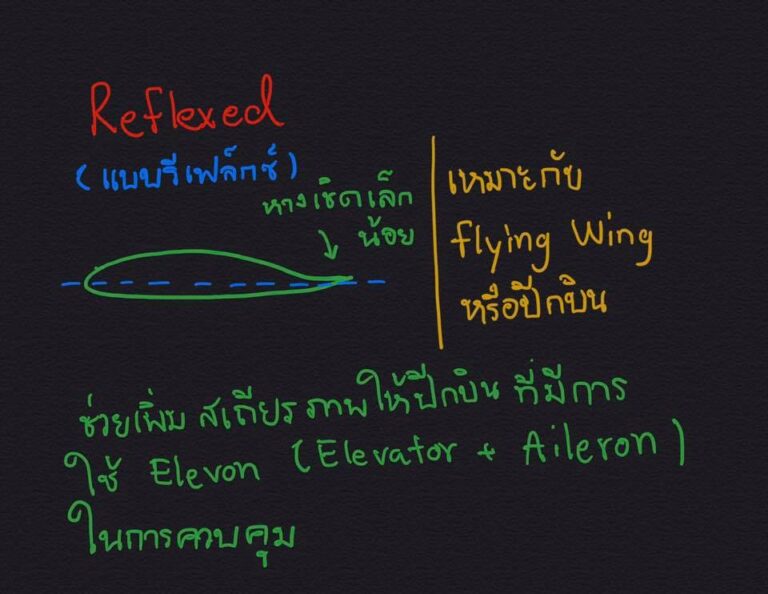 Reflexed
(แบบรีเฟล็กซ์)
หางเชิดเล็ก
น้อย
เหมาะกับ
flying Wing
หรือปีกบิน
ช่วยเพิ่มสเถียรภาพให้ปีกบิน ที่มีการ
ใช้ Elevon (Elevator + Aileron)
ในการควบคุม